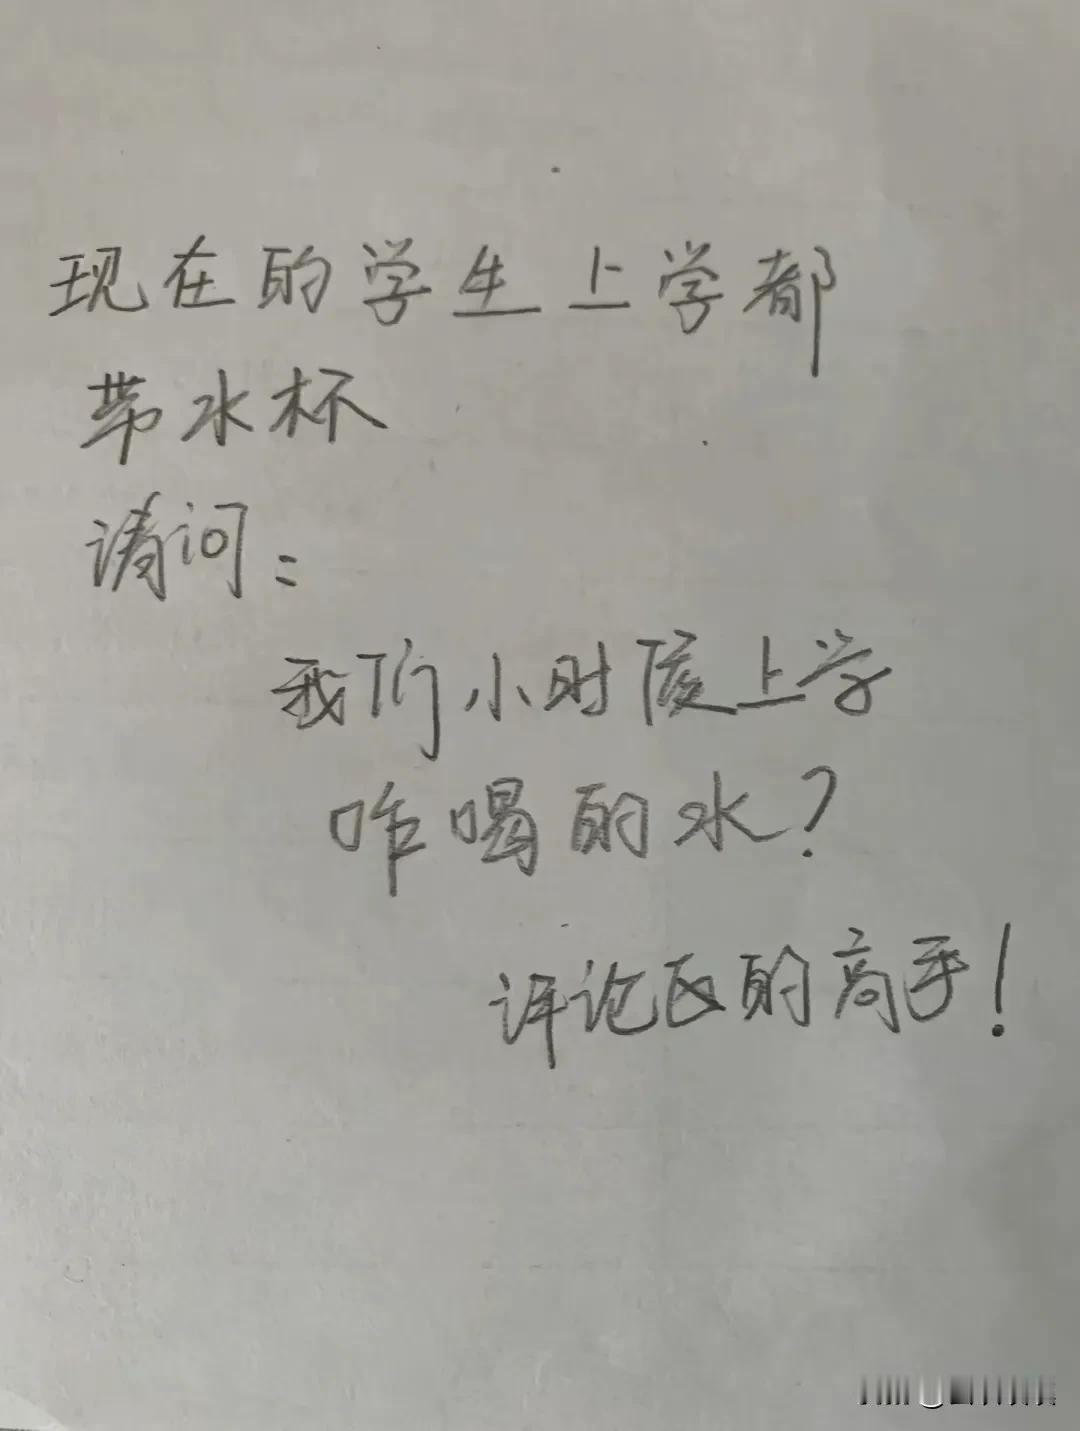 现在的学生上学都
带水杯
请问：
我们小时候上学
咋喝的水？
评论区的高手！